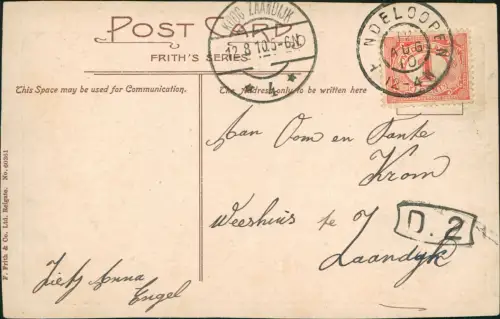 POST CARD
FRITH'S SERIES
KOOG-ZAANDIJK
12.8.10.5-6N
* 1 *
NDELOOPEN
AUG
10
12-4N
This Space may be used for Communication.
The Address only to be written here
Aan Oom en Tante
Krom
Weeshuis te Z
Zaandyk
D.2
Anna
Engel
F. Frith & Co. Ltd. Reigate. No. 60361